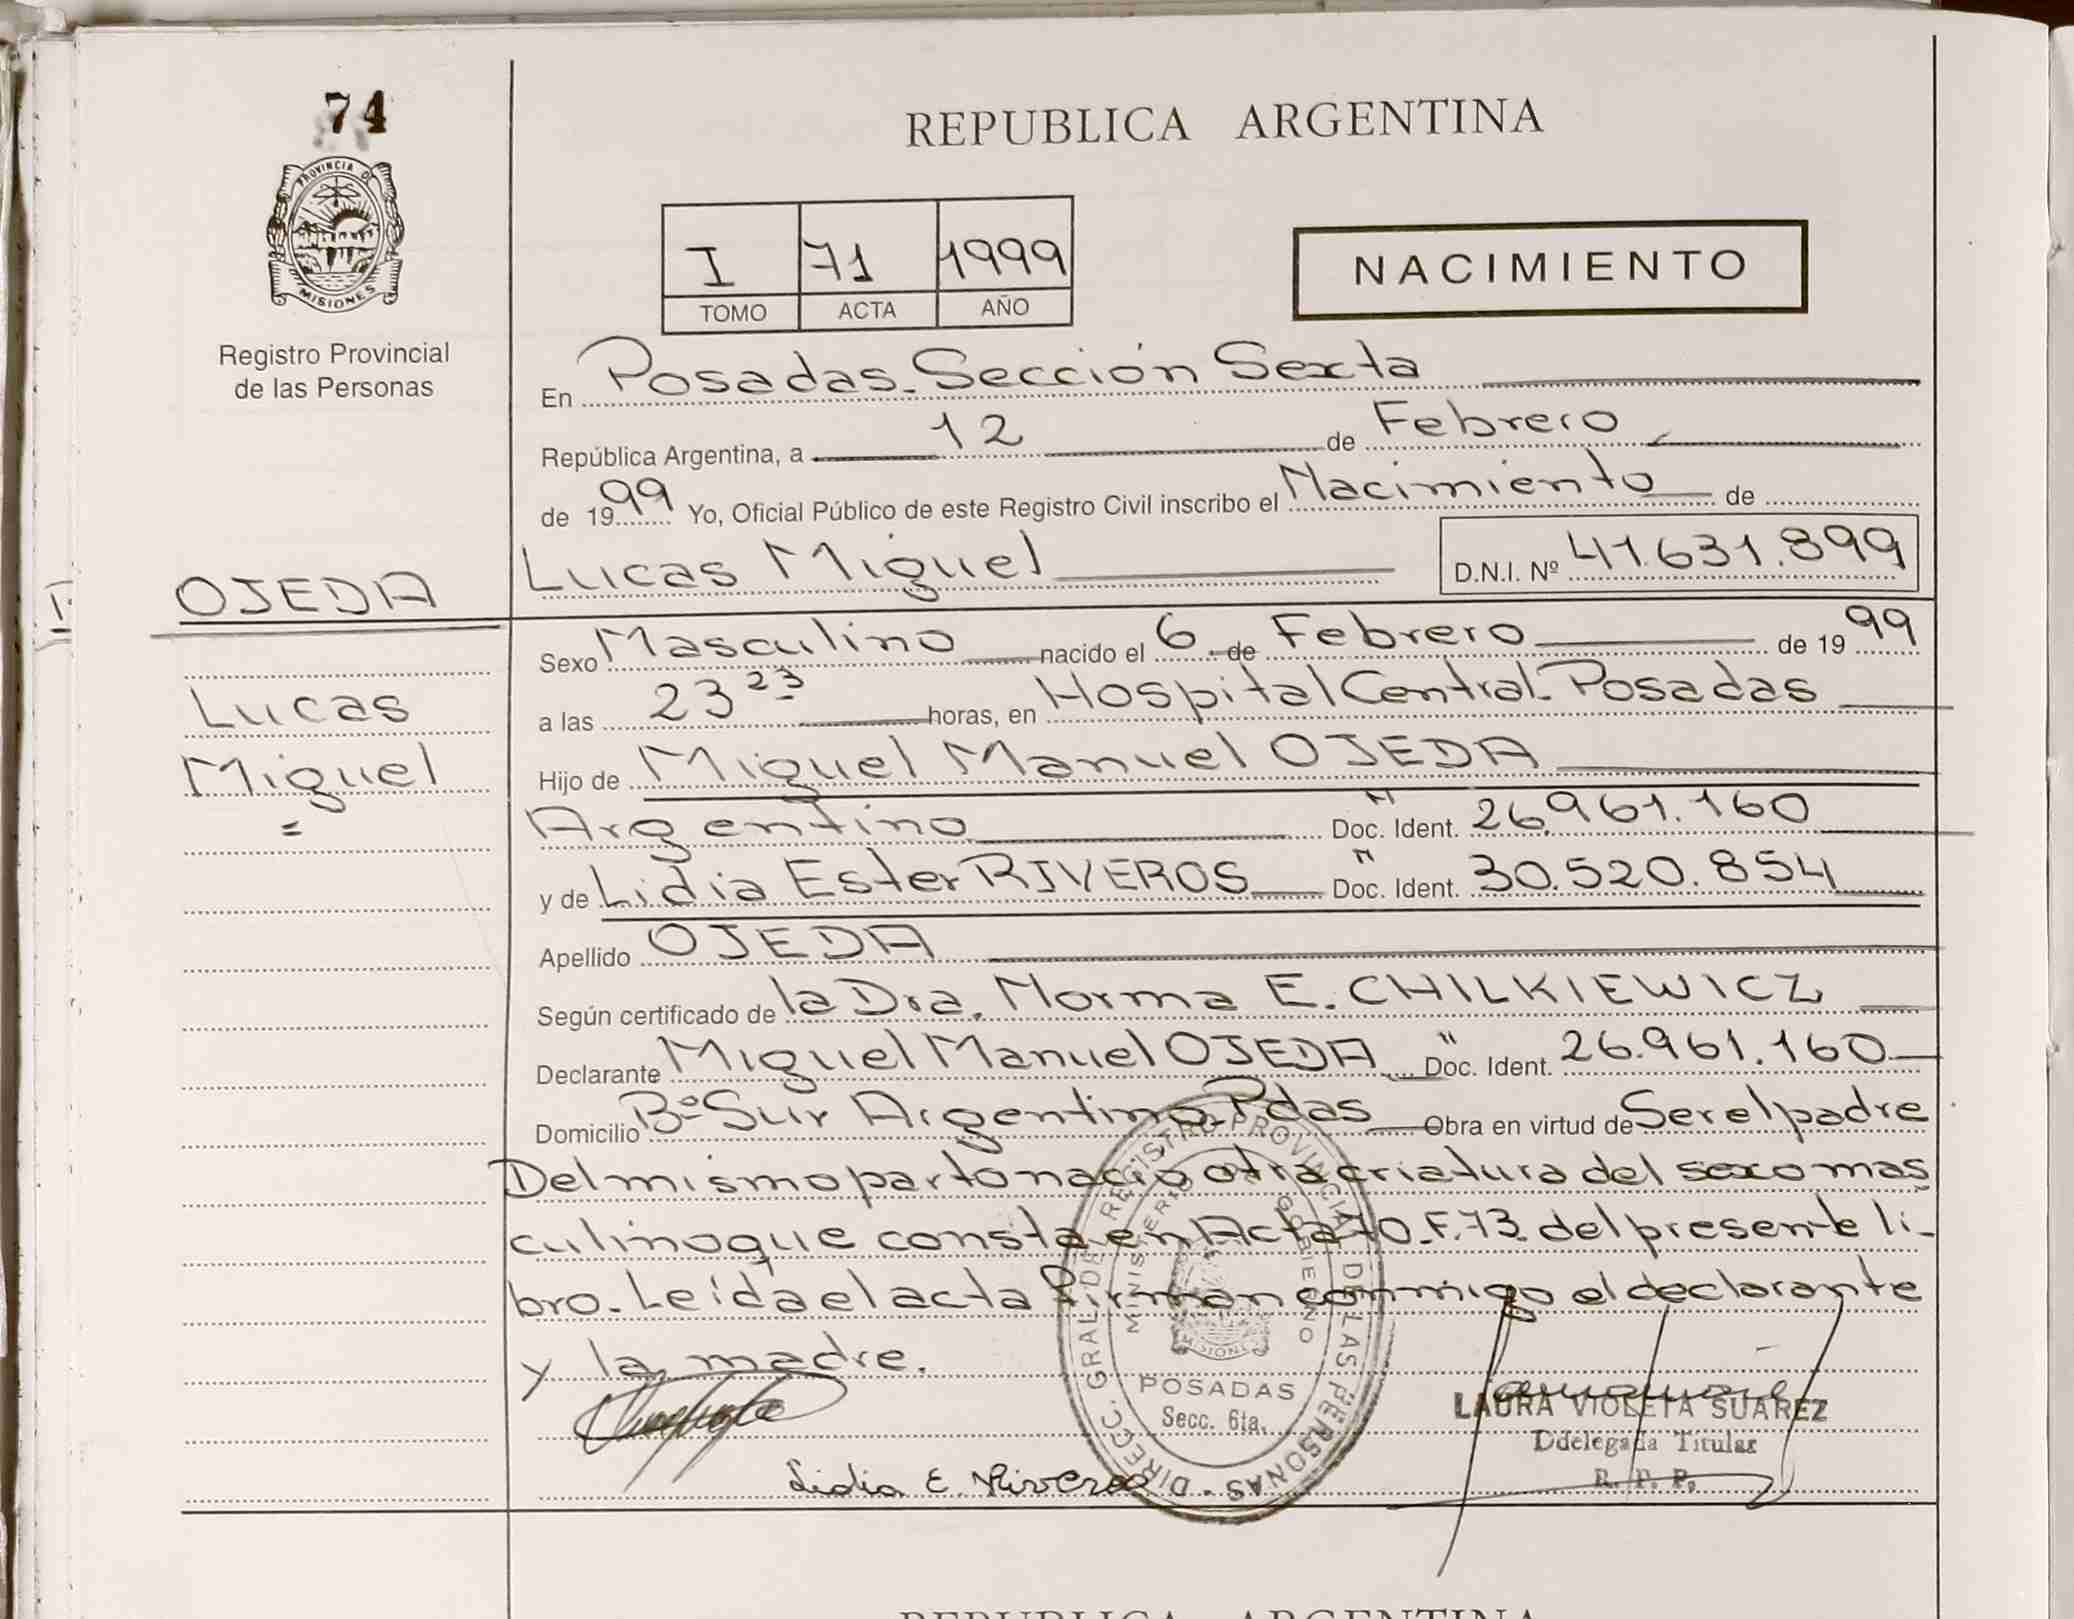 74
PROVINCIA DE
MISIONES
Registro Provincial
de las Personas
REPUBLICA ARGENTINA
I 71 1999
TOMO ACTA AÑO
NACIMIENTO
En Posadas. Sección Sexta
República Argentina, a 12 de Febrero
de 1999 Yo, Oficial Público de este Registro Civil inscribo el Nacimiento de
Lucas Miguel D.N.I. Nº 41.631.899
OJEDA
Lucas
Miguel
Sexo Masculino nacido el 6 de Febrero de 1999
a las 23 23 horas, en Hospital Central-Posadas
Hijo de Miguel Manuel OJEDA
Argentino Doc. Ident. 26.961.160
y de Lidia Ester RIVEROS Doc. Ident. 30.520.854
Apellido OJEDA
Según certificado de la Dra. Norma E. CHILKIEWICZ
Declarante Miguel Manuel OJEDA " Doc. Ident. 26.961.160
Domicilio Bº Sur Argentino-Pdas Obra en virtud de Ser el padre
Del mismo parto nacio otra criatura del sexo mas
culino que consta en Acta 70.F.73. del presente li-
bro. Leída el acta firman conmigo el declarante
y la madre.
DIRECC. GRAL. DE REGISTRO PROVINCIAL DE LAS PERSONAS
MINISTERIO GOBIERNO
MISIONES
POSADAS
Secc. 6ta.
Lidia E. Riveros
LAURA VIOLETA SUAREZ
Ddelegada Titular
R. P. P.
REPUBLICA ARGENTINA